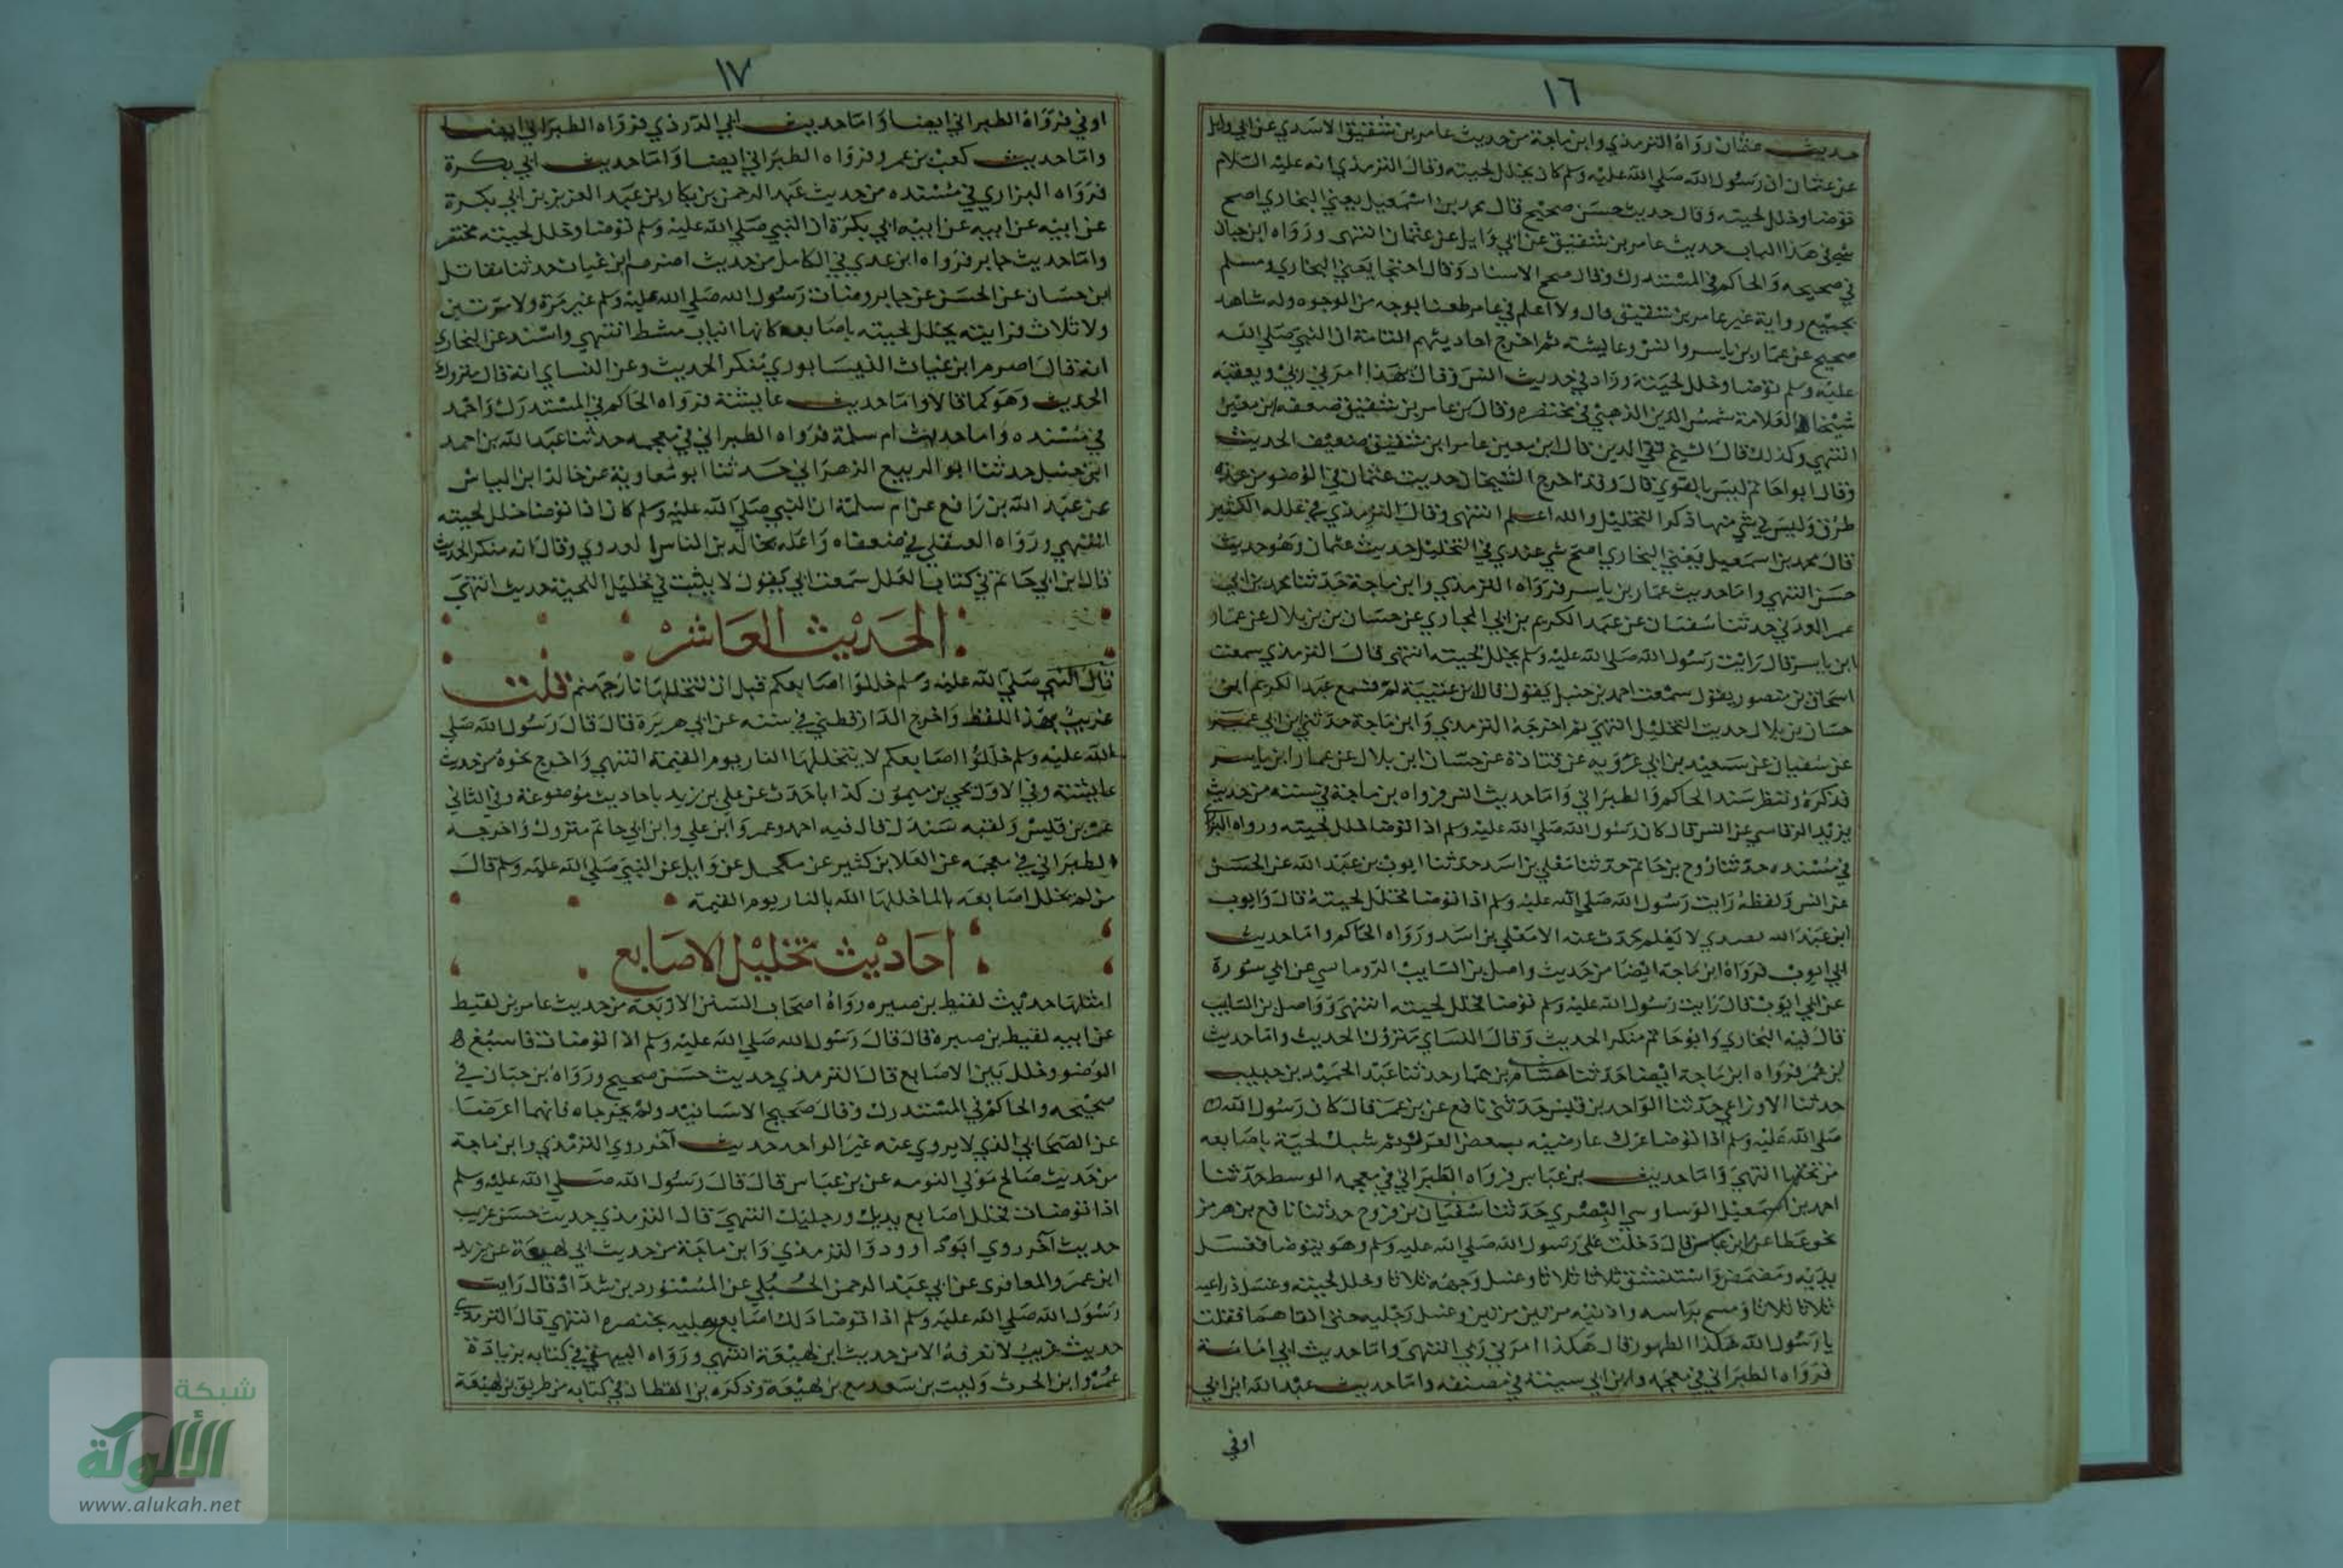 ١٦
حديث عثمان رواه الترمذي وابن ماجة من حديث عامر بن شقيق الاسدي عن ابي وايل
عن عثمان ان رسول الله صلي الله عليه وسلم كان يخلل لحيته وقال الترمذي انه عليه السلام
توضا وخلل لحيته وقال حديث حسن صحيح قال محمد بن اسمعيل يعني البخاري اصح
شي في هذا الباب حديث عامر بن شقيق عن ابي وايل عن عثمان انتهى ورواه ابن حبان
في صحيحه والحاكم في المستدرك وقال صحيح الاسناد وقال احتجا يعني البخاري ومسلم
بجميع رواية غير عامر بن شقيق قال ولا اعلم في عامر طعنا بوجه من الوجوه وله شاهد
صحيح عن عمار بن ياسر وانس وعايشة ثم اخرج احاديثهم الثامة ان النبي صلي الله
عليه وسلم توضا وخلل لحيته وزاد في حديث انس وقال بهذا امرني ربي وتعقبه
شيخنا العلامة شمس الدين الذهبي في مختصره وقال بن عامر بن شقيق ضعفه ابن معين
انتهي وكذلك قال الشيخ تقي الدين قال ابن معين عامر ابن شقيق ضعيف الحديث
وقال ابو احاتم ليس بالقوي قال وقد اخرج الشيخان حديث عثمان في الوضو من عدة
طرق وليس في شي منها ذكر التخليل والله اعلم انتهى وقال الترمذي في علله الكبير
قال محمد بن اسمعيل يعني البخاري اصح شي عندي في التخليل حديث عثمان وهو حديث
حسن انتهي واما حديث عمار بن ياسر فرواه الترمذي وابن ماجة حدثنا محمد بن ابي
عمر العدني حدثنا سفيان عن عبد الكريم بن ابي المخاري عن حسان بن بلال عن عمار
ابن ياسر قال رايت رسول الله صلي الله عليه وسلم يخلل لحيته انتهى قال الترمذي سمعت
اسحاق بن منصور يقول سمعت احمد بن حنبل يقول قال ابن عتيبة لم تسمع عبد الكريم ابن
حسان بن بلال حديث التخليل انتهي ثم اخرجه الترمذي وابن ماجة حدثني ابن ابي عمر
عن سفيان عن سعيد بن ابي عروبه عن قتادة عن حسان ابن بلال عن عمار ابن ياسر
فذكره وتنظر سند الحاكم والطبراني واما حديث انس فرواه بن ماجة في سننه من حديث
يزيد الرقاسي عن انس قال كان رسول الله صلي الله عليه وسلم اذا توضا خلل لحيته ورواه البزار
في مسنده حدثنا روح بن حاتم حدثنا معلي بن اسد حدثنا ايوب بن عبد الله عن الحسن
عن انس ولفظه رايت رسول الله صلي الله عليه وسلم اذا توضا يخلل لحيته قال وايوب
ابن عبد الله بصري لا يعلم حدث عنه الا معلي بن اسد ورواه الحاكم واما حديث
ابي ايوب فرواه ابن ماجة ايضا من حديث واصل بن السايب الروماسي عن ابي سورة
عن ابي ايوب قال رايت رسول الله صلي الله عليه وسلم توضا فخلل لحيته انتهى وواصل بن السايب
قال فيه البخاري وابو حاتم منكر الحديث وقال النساي متروك الحديث واما حديث
ابن عمر فرواه ابن ماجة ايضا حدثنا هشام بن عمار حدثنا عبد الحميد بن حبيب
حدثنا الاوزاعي حدثنا الواحد بن قيس حدثني نافع عن بن عمر قال كان رسول الله
صلي الله عليه وسلم اذا توضا عرك عارضيه بعض العرك ثم شبك لحية باصابعه
من تحتها انتهي واما حديث بن عباس فرواه الطبراني في معجمه الوسط حدثنا
احمد بن اسمعيل الوساوسي البصري حدثنا سفيان بن فروخ حدثنا نافع بن هرمز
نحو عطا عن ابن عباس قال دخلت على رسول الله صلي الله عليه وسلم وهو يتوضا فغسل
يديه ومضمض واستنشق ثلاثا ثلاثا وغسل وجهه ثلاثا وخلل لحيته وغسل ذراعيه
ثلاثا ثلاثا ومسح براسه واذنيه مرتين مرتين وغسل رجليه حتى انقاهما فقلت
يا رسول الله هكذا الطهور قال هكذا امرني ربي انتهى واما حديث ابي امامة
فرواه الطبراني في معجمه وابن ابي سيبة في مصنفه واما حديث عبد الله ابن ابي
اوفي
١٧
اوفي فرواه الطبراني ايضا واما حديث ابي الدرذي فرواه الطبراني ايضا
واما حديث كعب بن عمرو فرواه الطبراني ايضا واما حديث ابي بكرة
فرواه البزاري في مسنده من حديث عبد الرحمن بن بكار بن عبد العزيز بن ابي بكرة
عن ابيه عن ابيه عن ابيه ابي بكرة ان النبي صلي الله عليه وسلم توضا وخلل لحيته مختصر
واما حديث جابر فرواه ابن عدي في الكامل من حديث اصرم ابن غياث حدثنا مقاتل
ابن حسان عن الحسن عن جابر وضات رسول الله صلي الله عليه وسلم غير مرة ولا مرتين
ولا ثلاث فرايته يخلل لحيته باصابعه كانها انياب مشط انتهي واسند عن البخاري
انه قال اصرم ابن غياث النيسابوري منكر الحديث وعن النساي انه قال متروك
الحديث وهو كما قالا واما حديث عايشة فرواه الحاكم في المستدرك واحمد
في مسنده واما حديث ام سلمة فرواه الطبراني في معجمه حدثنا عبد الله بن احمد
ابن حنبل حدثنا ابو الربيع الزهراني حدثنا ابو معاوية عن خالد ابن الياس
عن عبد الله بن رافع عن ام سلمة ان النبي صلي الله عليه وسلم كان اذا توضا خلل لحيته
انتهي ورواه العقلي في ضعفاه واعله بخالد بن الناس العدوي وقال انه منكر الحديث
قال ابن ابي حاتم في كتاب العلل سمعت ابي يقول لا يثبت في تخليل اللحية حديث انتهى
الحديث العاشر
قال النبي صلي الله عليه وسلم خللوا اصابعكم قبل ان تتخللها نار جهنم قلت
غريب بهذا اللفظ واخرج الدارقطني في سننه عن ابي هريرة قال قال رسول الله صلي
الله عليه وسلم خللوا اصابعكم لا يتخللها النار يوم القيمة انتهي واخرج نحوه من حديث
عايشة وفي الاول يحيي بن ميمون كذابا حدث عن علي بن زيد باحاديث موضوعة وفي الثاني
عمر بن قليس ولقبه سندل قال فيه احمد وعمر وابن علي وابن ابي حاتم متروك واخرجه
الطبراني في معجمه عن العلا بن كثير عن مكحل عن وايل عن النبي صلي الله عليه وسلم قال
من لم يخلل اصابعه بالما خللها الله بالنار يوم القيمة
احاديث تخليل الاصابع
امثلها حديث لقيط بن صبره رواه اصحاب السنن الاربعة من حديث عامر بن لقيط
عن ابيه لقيط بن صبرة قال قال رسول الله صلي الله عليه وسلم اذا توضات فاسبغ
الوضو وخلل بين الاصابع قال الترمذي حديث حسن صحيح ورواه بن حبان في
صحيحه والحاكم في المستدرك وقال صحيح الاسانيد ولم يخرجاه فانهما اعرضا
عن الصحابي الذي لا يروي عنه غير الواحد حديث آخر روي الترمذي وابن ماجة
من حديث صالح مولي التومه عن بن عباس قال قال رسول الله صلي الله عليه وسلم
اذا توضات فخلل اصابع يديك ورجليك انتهي قال الترمذي حديث حسن غريب
حديث آخر روي ابو داوود والترمذي وابن ماجة من حديث ابي لهيعة عن يزيد
ابن عمرو المعافري عن ابي عبد الرحمن الحبلي عن المستورد بن شداد قال رايت
رسول الله صلي الله عليه وسلم اذا توضا دلك اصابع رجليه بخنصره انتهي قال الترمذي
حديث غريب لا نعرفه الا من حديث ابن لهيعة انتهي ورواه البيهقي في كتابه بزيادة
عمرو ابن الحرث وليث بن سعد مع بن لهيعة وذكره بن القطان في كتابه من طريق بن لهيعة
شبكة
الألوكة
www.alukah.net